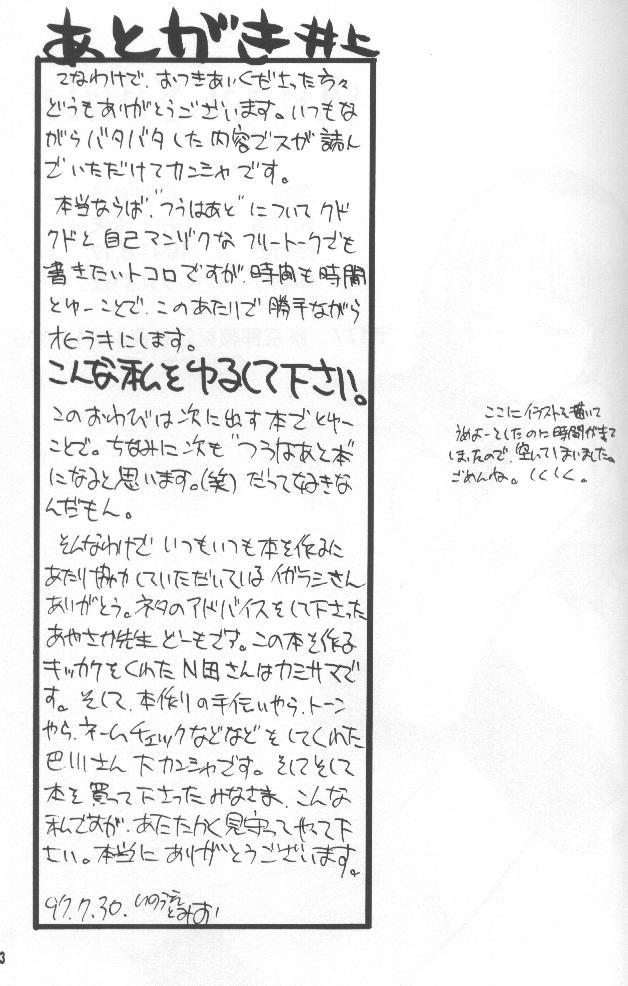 あとがき 井上
てなわけで、おつきあいくださった方々
どうもありがとうございます。いつもな
がらバタバタした内容でスが読ん
でいただけてカンシャです。
本当ならば、"つうはあと"についてクド
クドと自己マンゾクなフリートークでも
書きたいトコロですが、時間も時間
とゆーことで、このあたりで勝手ながら
オヒラキにします。
こんな私をゆるして下さい。
このおわびは次に出す本でとゆー
ことで。ちなみに次も"つうはあと本"
になると思います。(笑) だって好きな
んだもん。
そんなわけで いつもいつも本を作るに
あたり協力していただいているイガラシさん
ありがとう。ネタのアドバイスをして下さった
あやさか先生 どーもです。この本を作る
キッカケをくれたN田さんはカミサマで
す。そして、本作りの手伝いやら、トーン
やら、ネームチェックなどなどをしてくれた
巴川さん 大カンシャです。そしてそして
本を買って下さったみなさま、こんな
私ですが、あたたかく見守ってやって下
さい。本当に ありがとうございます。
97.7.30. いのうえ
とみお
ここにイラストを描いて
うめよーとしたのに時間が来て
しまったので、空いてしまいました。
ごめんね。しくしく。
3